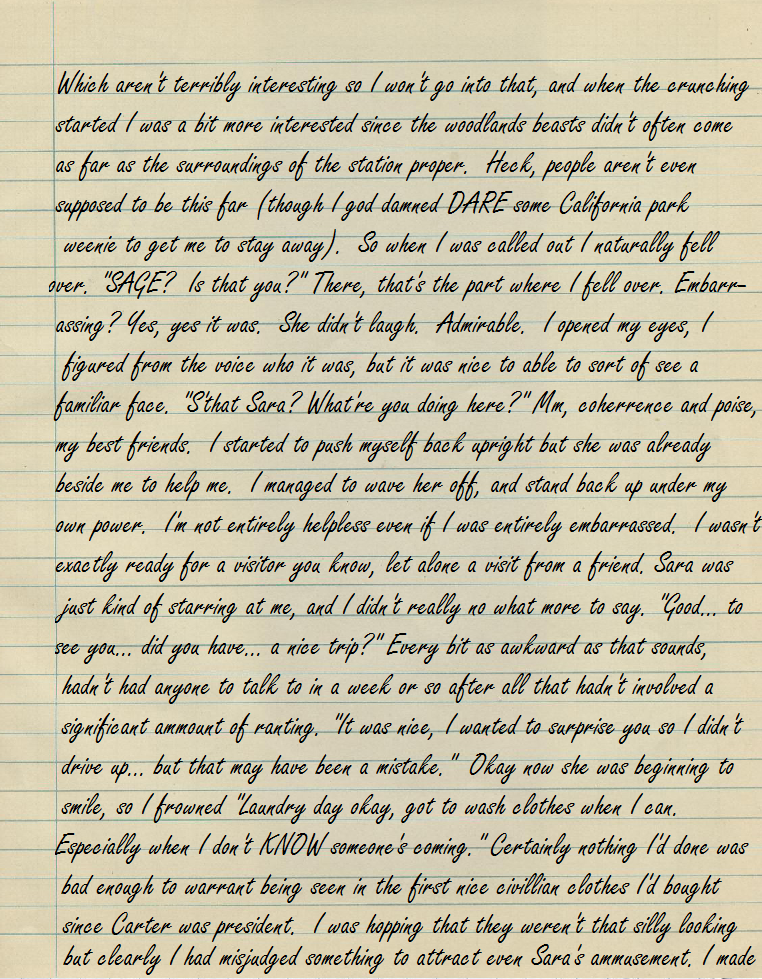 Which aren't terribly interesting so I won't go into that, and when the crunching
started I was a bit more interested since the woodlands beasts didn't often come
as far as the surroundings of the station proper. Heck, people aren't even
supposed to be this far (though I god damned DARE some California park
weenie to get me to stay away). So when I was called out I naturally fell
over. "SAGE? Is that you?" There, that's the part where I fell over. Embarr-
assing? Yes, yes it was. She didn't laugh. Admirable. I opened my eyes, I
figured from the voice who it was, but it was nice to able to sort of see a
familiar face. "S'that Sara? What're you doing here?" Mm, coherrence and poise,
my best friends. I started to push myself back upright but she was already
beside me to help me. I managed to wave her off, and stand back up under my
own power. I'm not entirely helpless even if I was entirely embarrassed. I wasn't
exactly ready for a visitor you know, let alone a visit from a friend. Sara was
just kind of starring at me, and I didn't really no what more to say. "Good... to
see you... did you have... a nice trip?" Every bit as awkward as that sounds,
hadn't had anyone to talk to in a week or so after all that hadn't involved a
significant ammount of ranting. "It was nice, I wanted to surprise you so I didn't
drive up... but that may have been a mistake." Okay now she was beginning to
smile, so I frowned "Laundry day okay, got to wash clothes when I can.
Especially when I don't KNOW someone's coming." Certainly nothing I'd done was
bad enough to warrant being seen in the first nice civillian clothes I'd bought
since Carter was president. I was hopping that they weren't that silly looking
but clearly I had misjudged something to attract even Sara's ammusement. I made